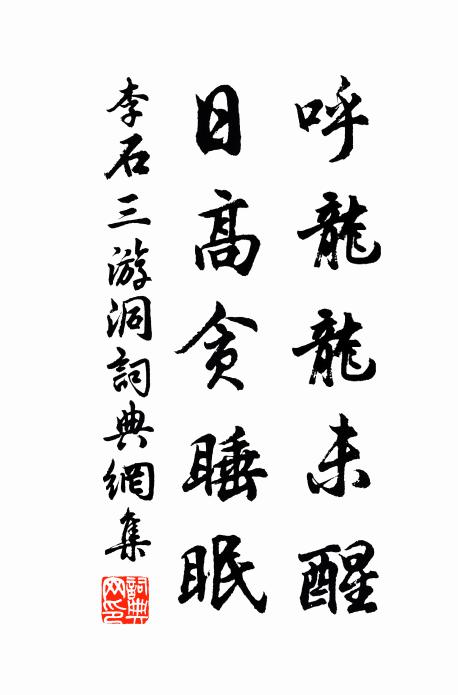 呼龍龍未醒
日高貪睡眠
李石三游洞詞典網集
詞典網印